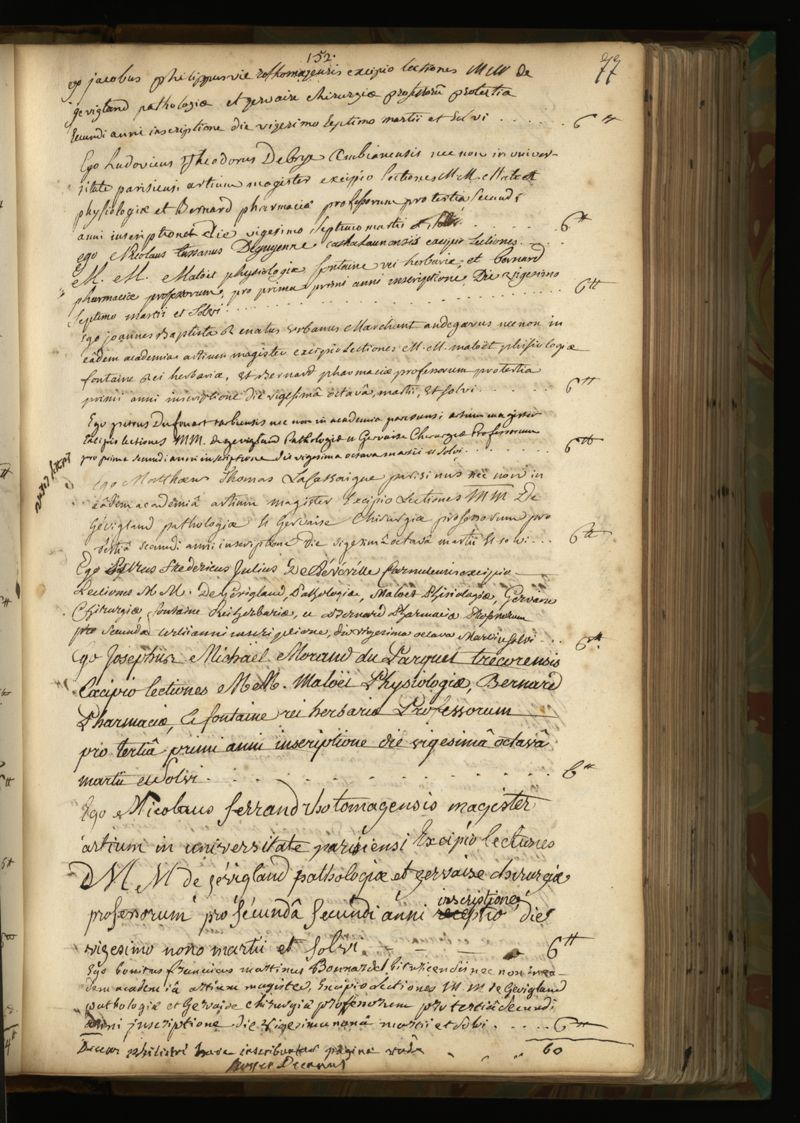 152.
77
ego jacobus philippus vie rothomagensis excipio lectiones MM de
gevigland pathologiæ et gervaise chirurgiæ professorũ pro tertia
secundi anni inscriptione die vigesimo septimo martii et solvi . . . . . . 6 ₶
Ego Ludovicus Theodorus Debrye nec non in univer-
sitate parisiensi artium magister excipio lectiones M.M. Maloet
physiologiæ et Bernard pharmaciæ professorum pro tertia secundi
anni inscriptione die vigesimo septimo martii et solvi . . . . . 6 ₶
ego Nicolaus excipio Lectiones . . .
M. M. Maloët physiologiæ, fontaine rei herbariæ, et bernard
pharmaciæ professorum, pro prima primi anni inscriptione Die vigesimo
septimo martii et solvi . . . . . . . . . . . . 6 ₶
Ego joannes Baptista Renatus urbanus Marchant andegavus nec non in
eâdem academia artium magister excipio Lectiones M. M. maloët phisiologiæ
fontaine Rei herbariæ, et Bernard pharmaciæ professorum pro tertia
primi anni inscriptione die vigesimâ octavâ martii, et solvi . . . . . . 6 ₶
Ego petrus Dufouart nec non in academia parisiensi artium magister
Excipio lectiones MM. de gevigland Pathologiæ et Gervaise Chirurgiæ Professorum
pro prima secundi anni inscriptione die vigesima octava martii et solvi . . . . 6 ₶
Ego Matthæus Thomas Lacassaigne parisinus nec non in
eâdem academiâ artium magister Excipio Lectiones MM De
Gévigland pathologiæ et Gervaise Chirurgiæ professorum pro
tertiâ secundi anni inscriptione die vigesimâ octavâ martii et solvi . . . 6 ₶
Ego Petrus Fredericus Julius De excipio
Lectiones M M. De Gévigland, Pathologiæ, Maloët Phisiologiæ, Gervaise
Chirurgiæ fontaine Rei herbariæ, et Bernard Pharmaciæ Professorum
pro secunda tertii anni inscriptione, die vigesima octava Martii et solvi . . 6 ₶
Ego Josephus Michaël Morand du Parquet trecorensis
Excipio lectiones M.M. Maloët Physiologiæ, Bernard
Pharmaciæ, et fontaine rei herbariæ Professorum
pro tertiâ primi anni inscriptione die vigesimâ octavâ
martii et solvi . . . . . . . . . 6 ₶
Ego Nicolaus ferrand rhotomagensis magister
artium in universitate parisiensi Excipio lectiones
D M M de gévigland pathologiæ et gervaise chirurgiæ
professorum pro sécundâ sécundi anni inscriptione die
vigesimo nono martii et solvi 6 ₶
Ego bonitus franciscus martinus Bonnardel bituricendis nec non in ea-
dem academiâ artium magister, Excipio Lectiones M. M. de Gevigland
pathologiæ et Gervaise chirurgiæ professorum pro tertiâ secundi
anni inscriptione die vigesima nonâ martii et solvi . . . . . 6 ₶
Decem philiatri hâcce inscribuntur pagina 60
Decanus